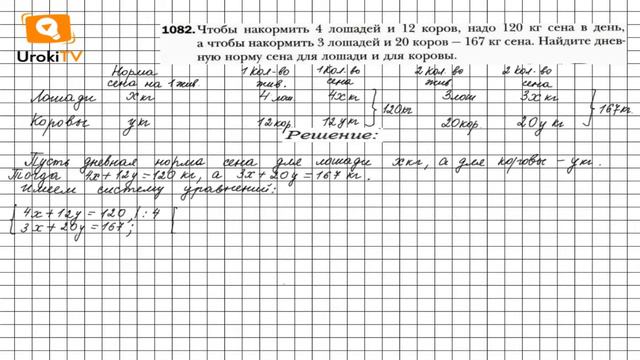 UrokiTV
1082. Чтобы накормить 4 лошадей и 12 коров, надо 120 кг сена в день,
а чтобы накормить 3 лошадей и 20 коров — 167 кг сена. Найдите днев-
ную норму сена для лошади и для коровы.
Норма сена на 1 жив 1 Кол-во жив. 1 Кол. во сена 2 Кол-во жив 2 кол-во сена
Лошади x кг 4 лош 4x кг 120кг 3лош 3x кг 167кг
Коровы y кг 12 кор. 12 y кг 20кор. 20y кг
Решение:
Пусть дневная норма сена для лошади x кг, а для коровы – y кг.
Тогда 4x + 12y = 120 кг, а 3x + 20y = 167 кг.
Имеем систему уравнений:
{ 4x + 12y = 120, | : 4 {
3x + 20y = 167;